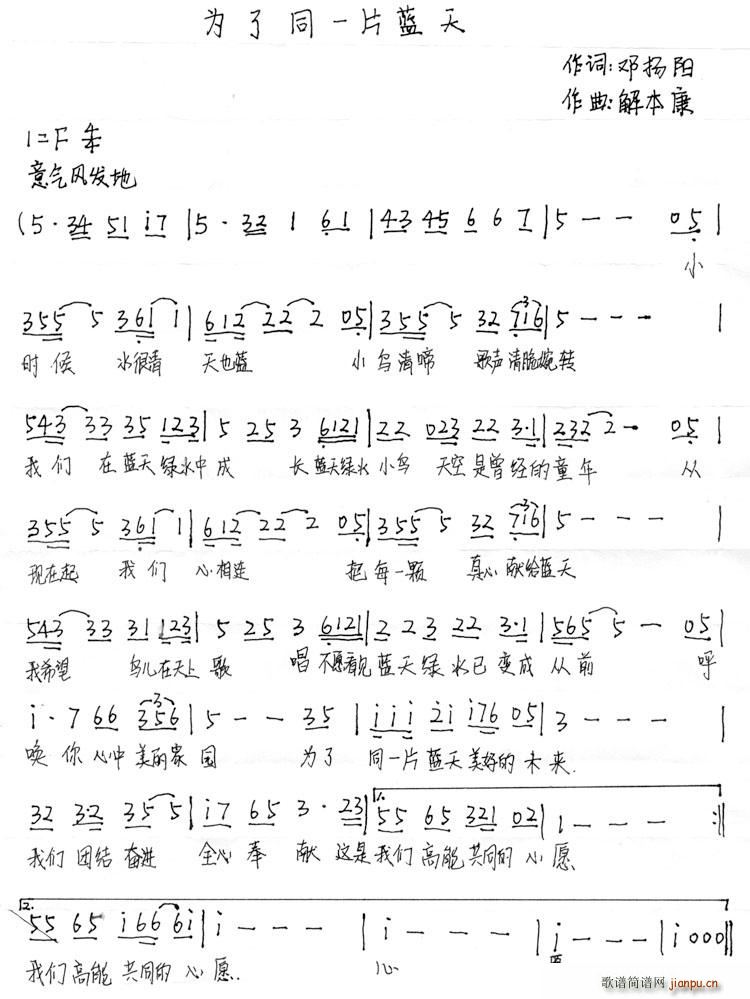 为了同一片蓝天
作词:邓扬阳
作曲:解本康
1=F 4/4
意气风发地
(5· 34 51 i7 | 5· 32 1 61 | 43 45 6 6 7 | 5 - - 05 |
小
355 5 361 1 | 612 22 2 05 | 355 5 32 716 | 5 - - - |
时候 水很清 天也蓝 小鸟清啼 歌声清脆婉转
543 33 35 123 | 5 25 3 6121 | 22 023 22 3·1 | 232 2 - 05 |
我们 在蓝天绿水中成 长蓝天绿水小鸟 天空是曾经的童年 从
355 5 361 1 | 612 22 2 05 | 355 5 32 716 | 5 - - - |
现在起 我们 心相连 把每一颗 真心献给蓝天
543 33 31 123 | 5 25 3 6121 | 2 23 22 3·1 | 565 5 - 05 |
我希望 鸟儿在天上歌 唱不愿看见蓝天绿水已变成从前 呼
i·7 66 356 | 5 - - 35 | iii 2i i76 05 | 3 - - - |
唤你心中美丽家园 为了 同一片蓝天美好的未来.
32 3·2 35 5 | i7 65 3·23 | 1. 55 65 321 02 | 1 - - - :||
我们团结奋进 全心奉献 这是我们高能共同的心愿
2. 55 65 i66 6i | i - - - | i - - - | i - - - | i000 ||
我们高能共同的心愿. 心 愿
歌谱简谱网
jianpu.cn